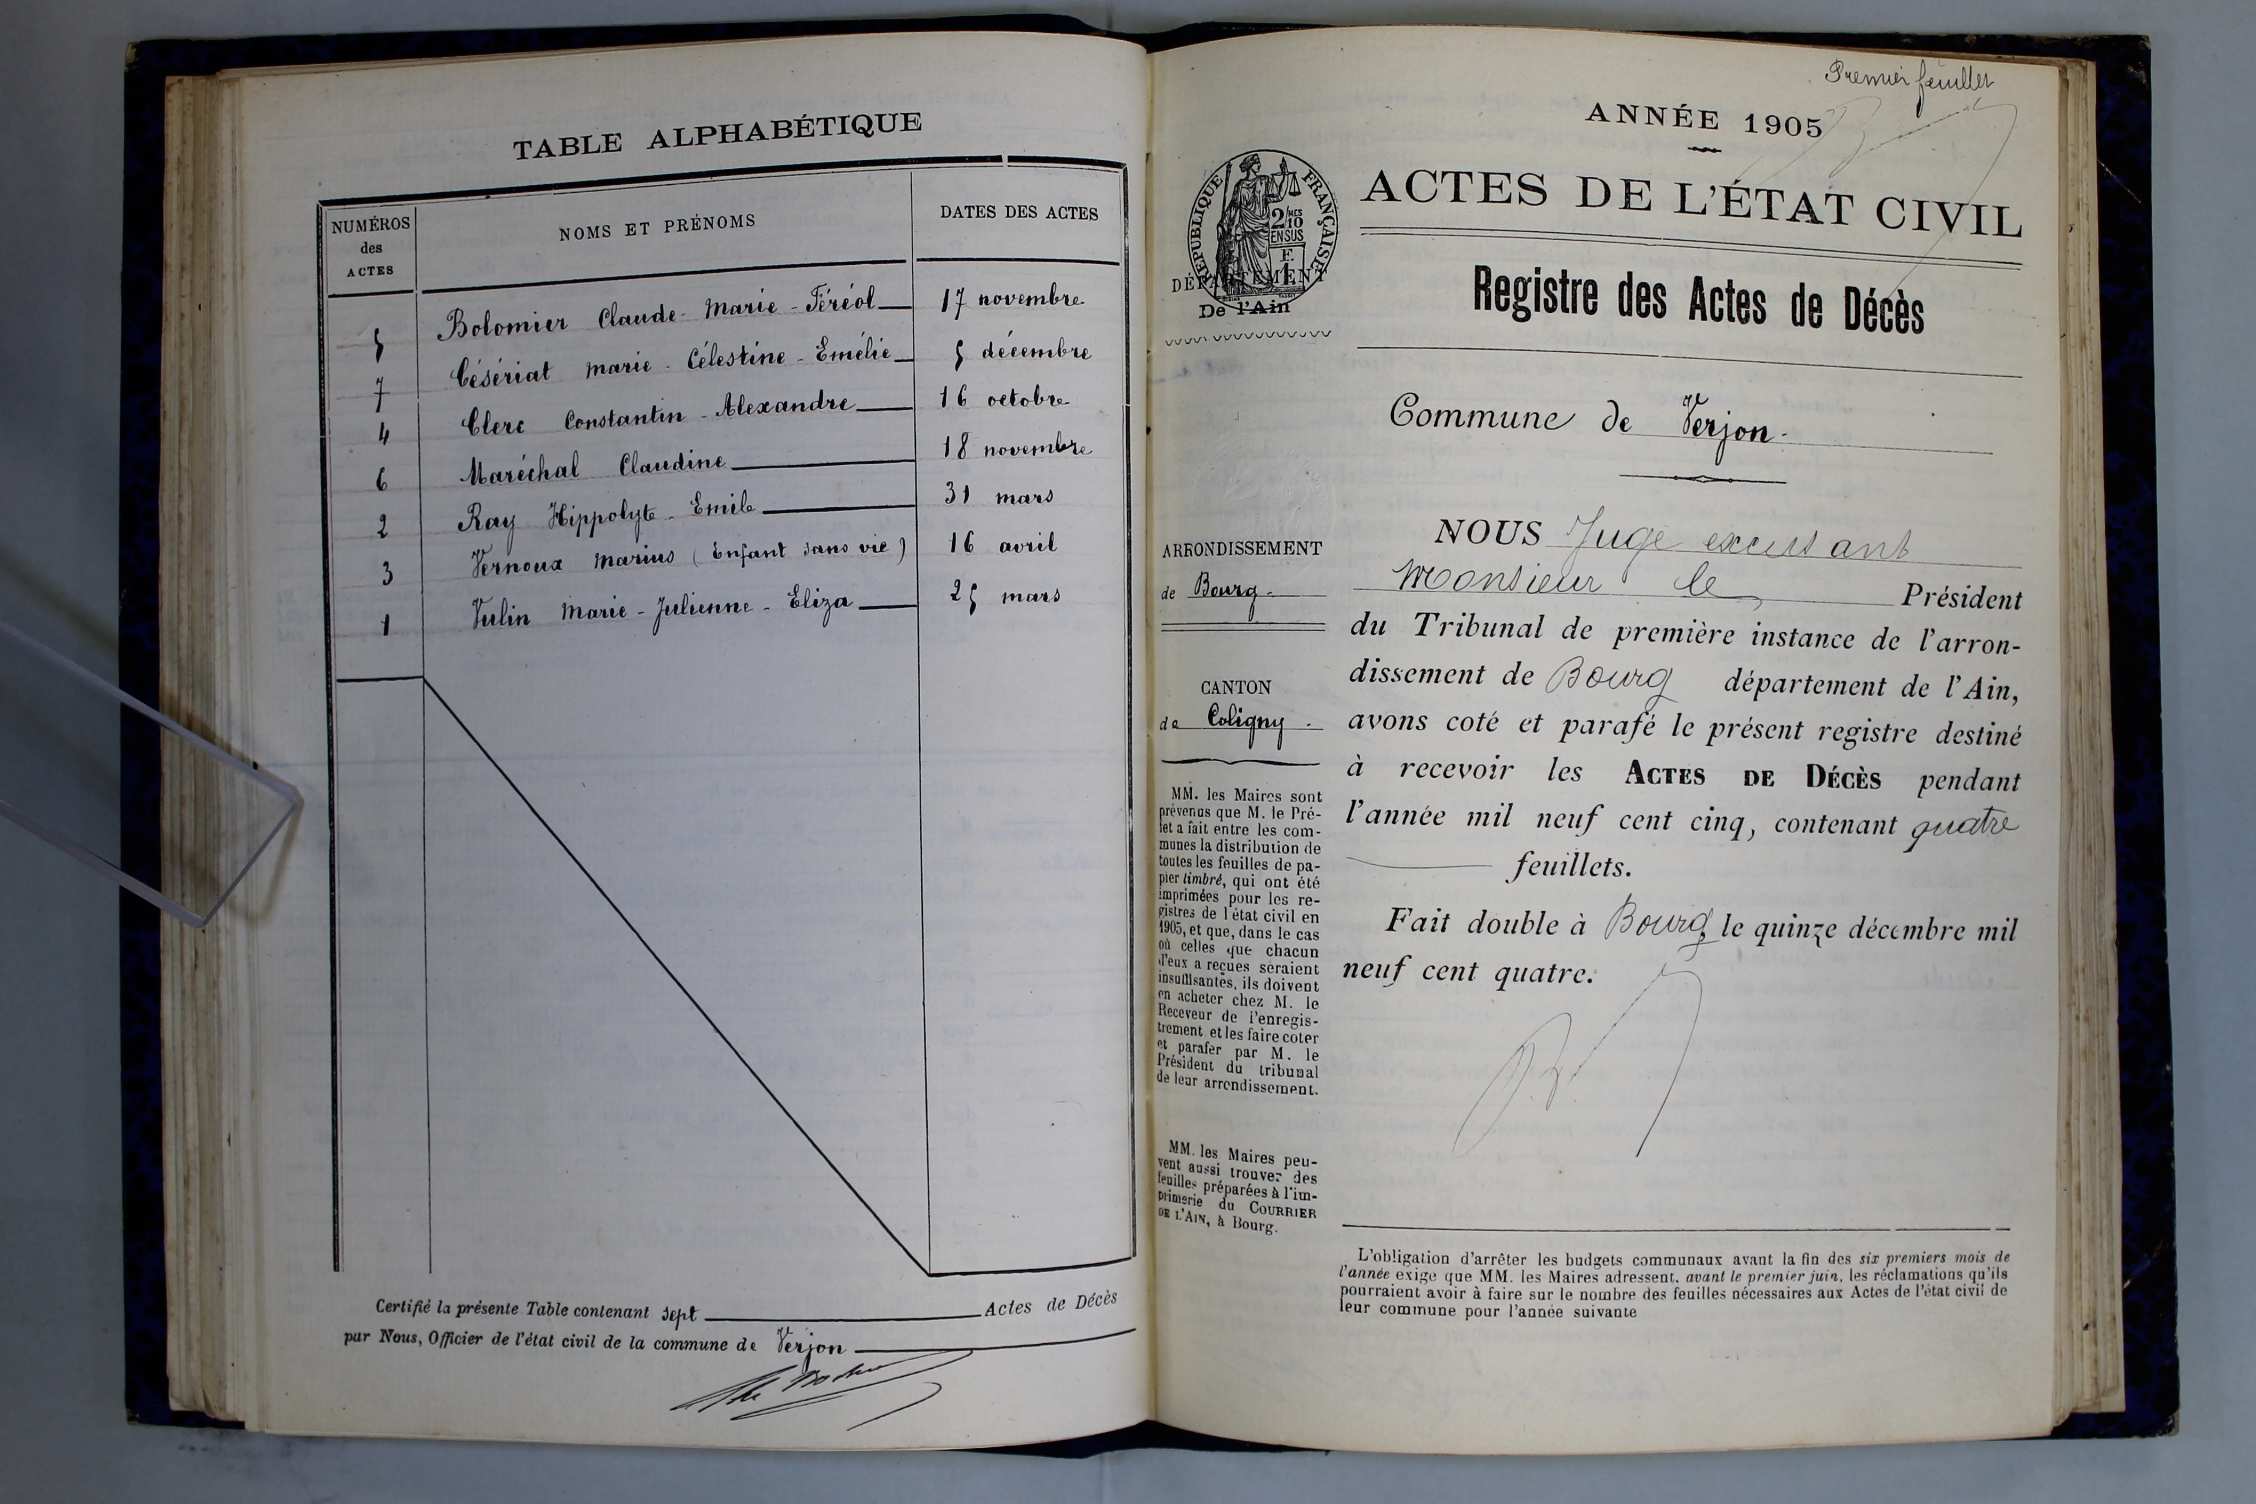 TABLE ALPHABÉTIQUE
NUMÉROS
des
ACTES
NOMS ET PRÉNOMS
DATES DES ACTES
5 Bolomier Claude-Marie-Féréol 17 novembre
7 Césériat Marie-Célestine-Emélie 5 décembre
4 Clerc Constantin-Alexandre 16 octobre
6 Maréchal Claudine 18 novembre
2 Ray Hippolyte-Emile 31 mars
3 Vernoux Marius (Enfant sans vie) 16 avril
1 Vulin Marie-Julienne-Eliza 25 mars
Certifié la présente Table contenant sept Actes de Décès
par Nous, Officier de l'état civil de la commune de Verjon
Premier feuillet
ANNÉE 1905
ACTES DE L'ÉTAT CIVIL
RÉPUBLIQUE FRANÇAISE
2/10
EN SUS
DÉPARTEMENT
De l'Ain
Registre des Actes de Décès
Commune de Verjon.
ARRONDISSEMENT
de Bourg.
CANTON
de Coligny.
MM. les Maires sont
prévenus que M. le Pré-
fet a fait entre les com-
munes la distribution de
toutes les feuilles de pa-
pier timbré, qui ont été
imprimées pour les re-
gistres de l'état civil en
1905, et que, dans le cas
où celles que chacun
d'eux a reçues seraient
insuffisantes, ils doivent
en acheter chez M. le
Receveur de l'enregis-
trement et les faire coter
et parafer par M. le
Président du tribunal
de leur arrondissement.
MM. les Maires peu-
vent aussi trouver des
feuilles préparées à l'im-
primerie du COURRIER
DE L'AIN, à Bourg.
NOUS Juge excusant
Monsieur le Président
du Tribunal de première instance de l'arron-
dissement de Bourg département de l'Ain,
avons coté et parafé le présent registre destiné
à recevoir les ACTES DE DÉCÈS pendant
l'année mil neuf cent cinq, contenant quatre
feuillets.
Fait double à Bourg, le quinze décembre mil
neuf cent quatre.
L'obligation d'arrêter les budgets communaux avant la fin des six premiers mois de
l'année exige que MM. les Maires adressent, avant le premier juin, les réclamations qu'ils
pourraient avoir à faire sur le nombre des feuilles nécessaires aux Actes de l'état civil de
leur commune pour l'année suivante